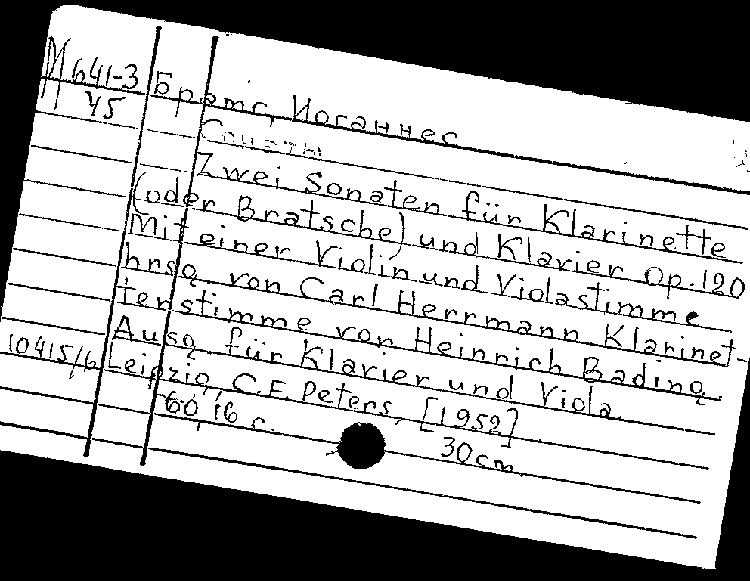 М641-3
У5
Брамс, Иоганнес
Сонаты
Zwei Sonaten für Klarinette
(oder Bratsche) und Klavier op.120
Mit einer Violin und Violastimme
hrsg. von Carl Herrmann. Klarinet-
tenstimme von Heinrich Bading.
Ausg. für Klavier und Viola.
10415/6 Leipzig, C.F. Peters, [1952]
60, 16 c. 30 cm.